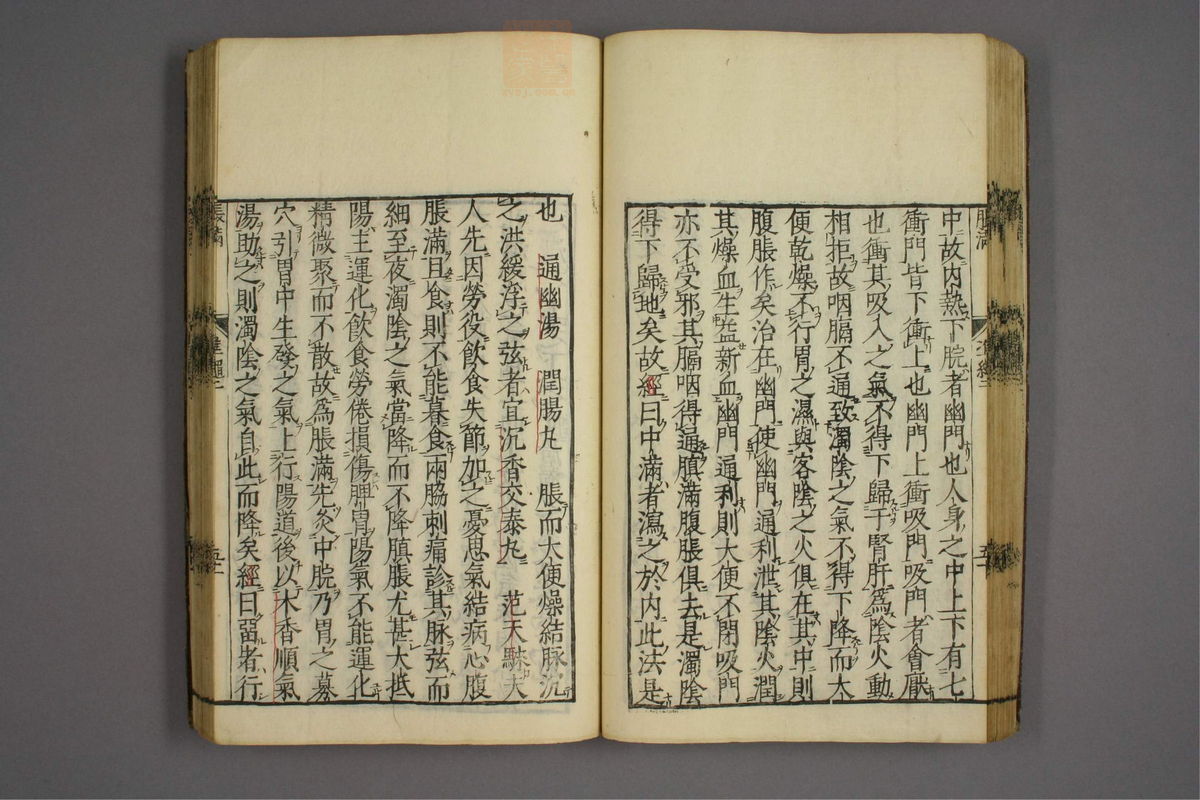 中故内熱下脘者幽門也人身之中上下有七
衝門皆下衝上也幽門上衝吸門吸門者會厭
也衝其吸入之氣不得下歸于腎肝爲陰火動
相拒故咽膈不通致濁陰之氣不得下降而大
便乾燥不行胃之濕與客陰之火俱在其中則
腹脹作矣治在幽門使幽門通利泄其陰火潤
其燥血生益新血幽門通利則大便不閉吸門
亦不受邪其膈咽得通䐜滿腹脹俱去是濁陰
得下歸地矣故經曰中滿者瀉之於内此法是
也 通幽湯 潤腸丸 脹而大便燥結脉沉
之洪緩浮之弦者宜沉香交泰丸 范天騋夫
人先因勞役飲食失節加之憂思氣結病心腹
脹滿旦食則不能暮食兩脇刺痛診其脉弦而
細至夜濁陰之氣當降而不降䐜脹尤甚大抵
陽主運化飲食勞倦損傷脾胃陽氣不能運化
精微聚而不散故爲脹滿先灸中脘乃胃之募
穴引胃中生發之氣上行陽道後以木香順氣
湯助之則濁陰之氣自此而降矣經曰留者行